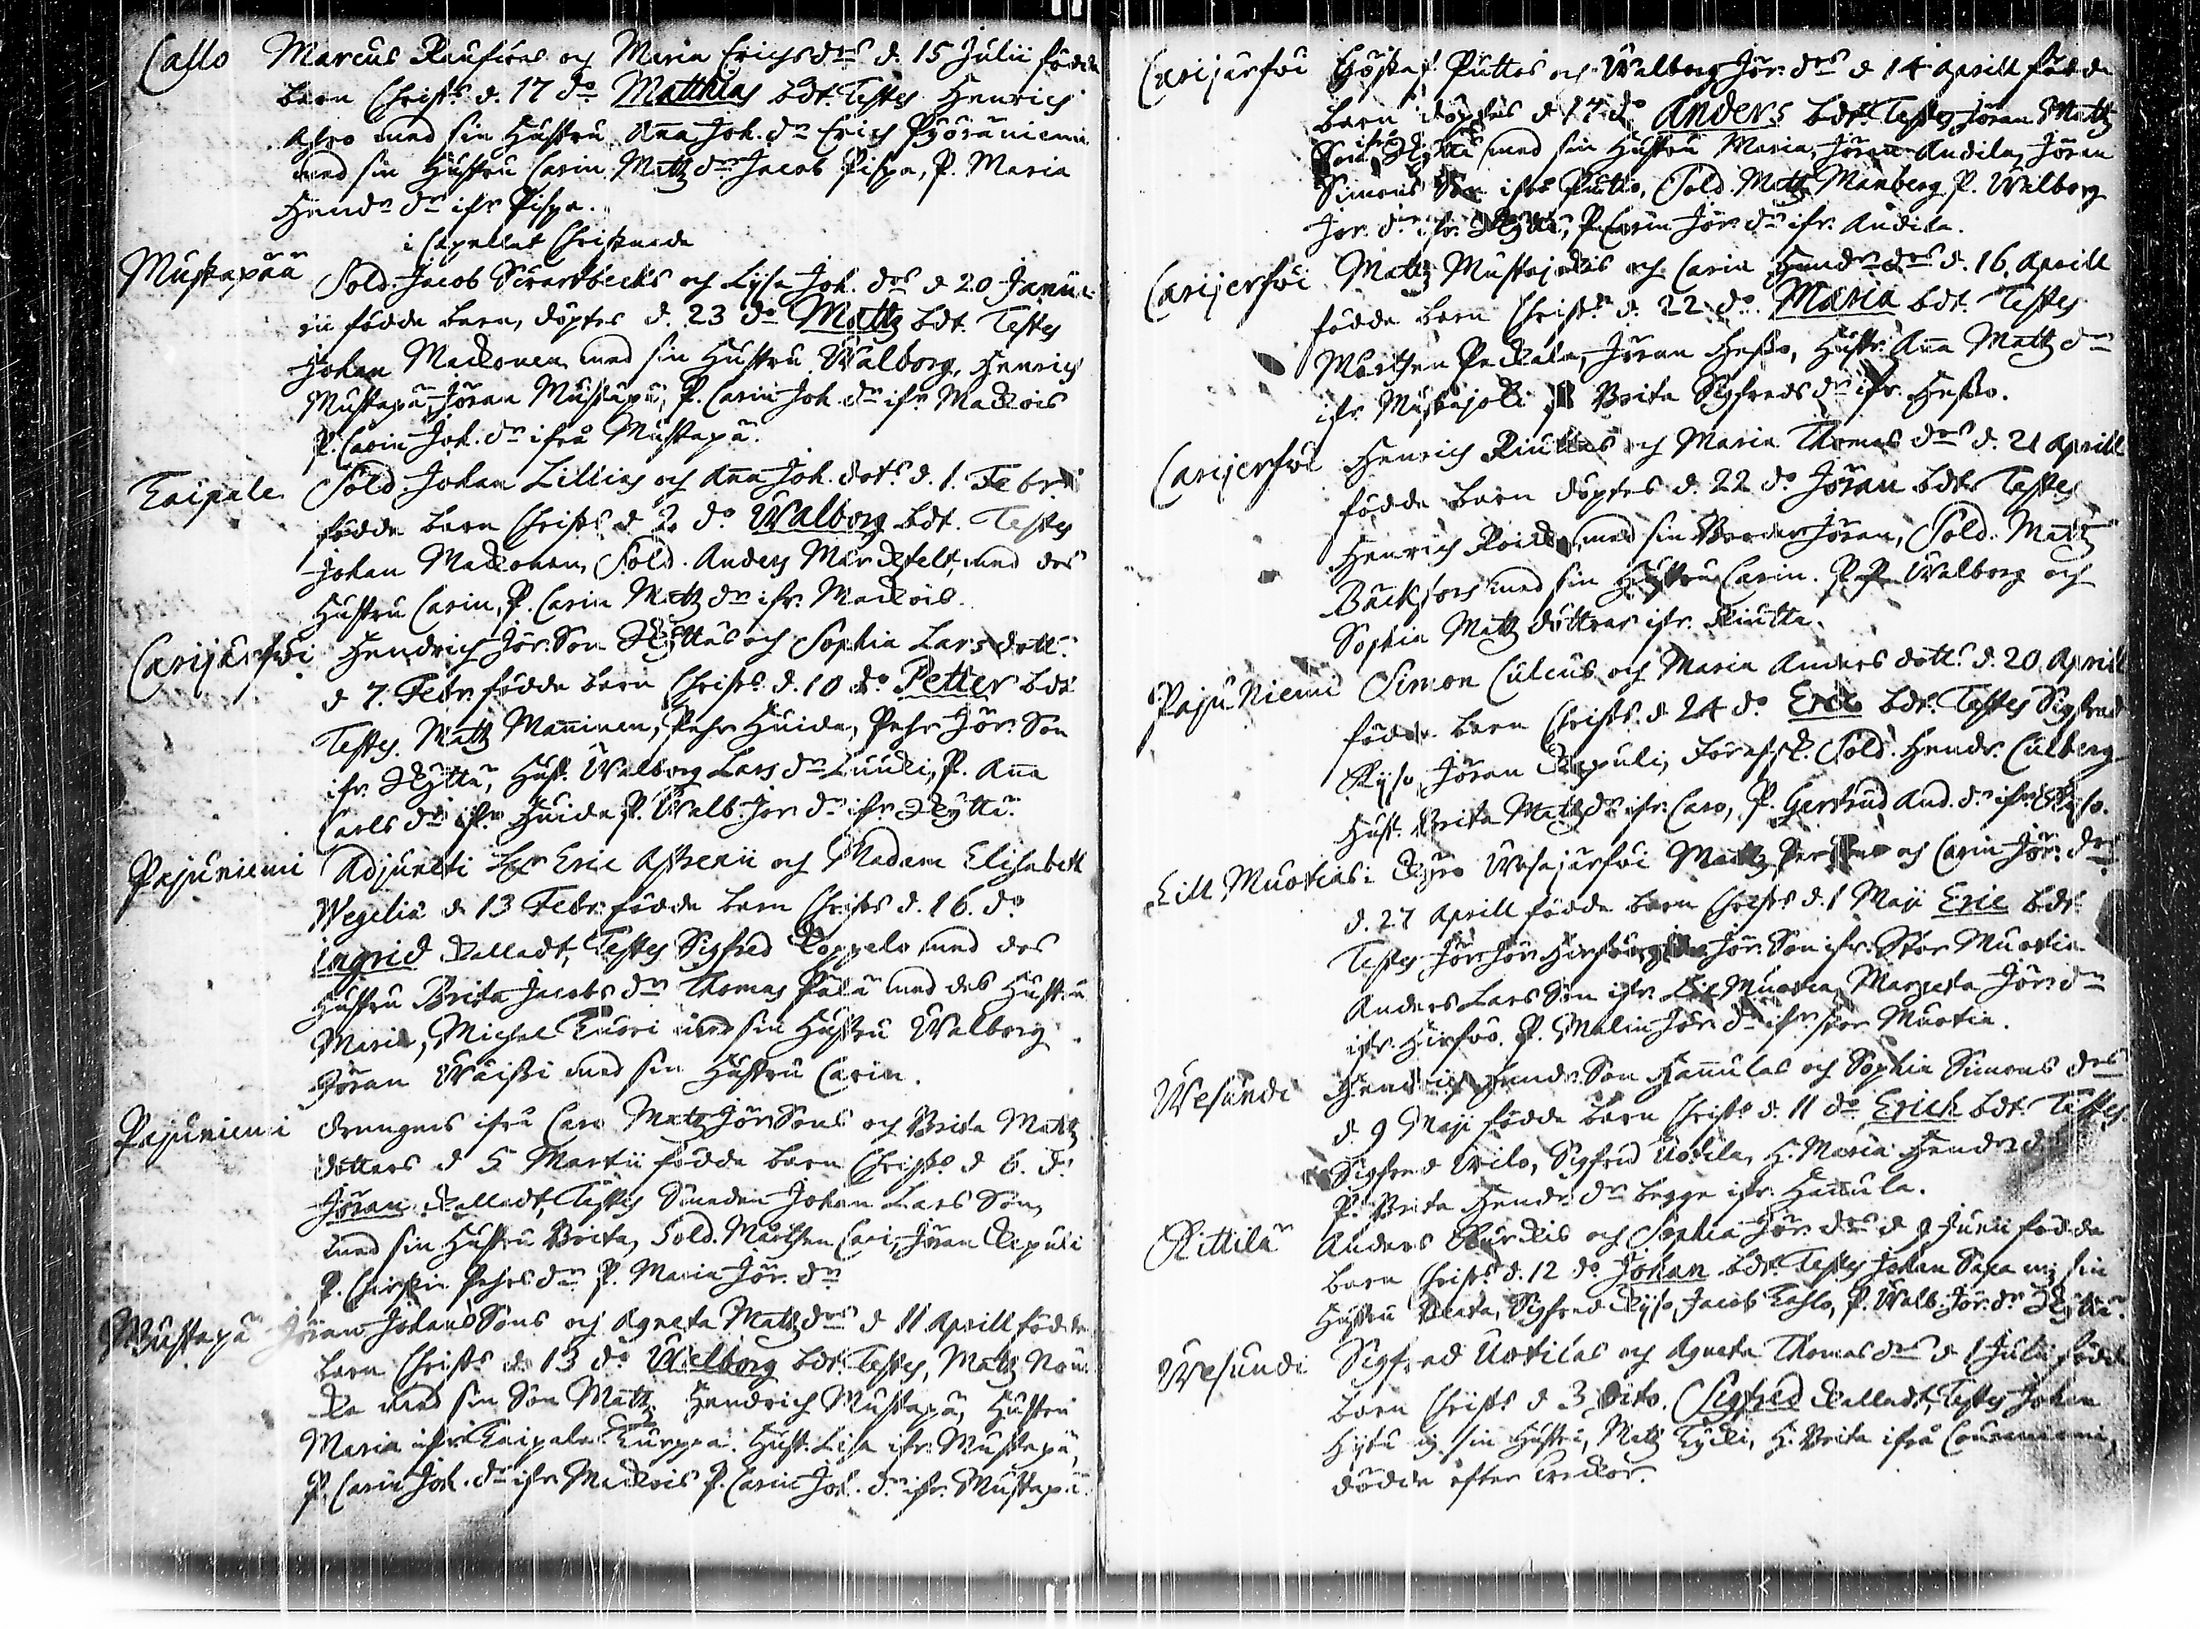 Callo Marcus Raufwas och Maria Erichs drs d. 15 Julii födde
barn Christs d. 17 do Matthias bdt. Testes Henrich
Alho med sin Hustru Ana Joh. dr Erich Pyöräniemi
med sin Hustru Carin Matts dr Jacob Pispa, P. Maria
Hendr dr ifr Pispa.
i Capellet Christnade
Mustapää Sold. Jacob Swartbecks och Lisa Joh. drs d 20 Janua-
rii födde barn, döptes d. 23 do Matts bdt. Testes
Johan Mackonen med sin Hustru Walborg, Henrich
Mustapä, Jöran Mustapä, P. Carin Joh. dr ifr Mackois
P. Carin Joh. dr ifrå Mustapä.
Taipale Sold. Johan Lillias och Ana Joh. dotrs d. 1. Febr.
födde barn Christs d 2 do Walborg bdt. Testes
Johan Mackonen, Sold. Anders Marckfelt, med des
Hustru Carin, P. Carin Matts dr ifr. Mackois.
Carijärfwi Hendrich Jör. Son Skyttäs och Sophia Lars dotters
d 7. Febr. födde barn Christs d. 10 do Petter bdt
Testes Matts Maninen, Pehr Huida, Pehr Jör. Son
ifr. Skyttä, Hust. Walborg Lars dr Luucki, P. Ana
Carls dr ifr. Huida P. Walb. Jör dr ifr. Skyttä.
Pajuniemi Adjuncti Hr Eric Astrenii och Madam Elisabeth
Wegelia d 13 Febr. födde barn Christs d. 16. do
Ingrid kalladt, Testes Sigfred Koppelo med des
Hustru Brita Jacobs dr Thomas Pälä med des Hustru
Maria, Michel Tuori med sin Hustru Walborg
Jöran Wäissi med sin Hustru Carin.
Pajuniemi drengens ifrå Caro Matts Jör Sons och Brita Matts
dotters d 5 Martii födde barn Christs d 6. do
Jöran kalladt, Testes Smeden Johan Lars Son,
med sin Hustru Brita, Sold. Mårthen Cari, Jöran Kapuli
P. Christin Pehrs dr P. Maria Jör. dr
Mustapä Jöran Johans Sons och Agneta Matts drs d 11 Aprill födde
barn Christs d. 13 do Walborg bdt. Testes, Matts Nou-
ka med sin Son Matts Hendrich Mustapä, Hustru
Maria ifr Taipale Kurppa. Hust. Lisa ifr. Mustapä,
P. Carin Joh. dr ifr Mackois P. Carin Joh. dr ifr. Mustapä.
Carijärfwi Puttos och Walborg Jör. drs d 14 Aprill födde
barn döptes d 17 do Anders bdt. Testes Jöran Matts
Son ifr Skyttä med sin Hustru Maria, Jöran Andila, Jöran
Simons Son ifr. Putto, Sold. Matts Manberg P. Walborg
Jör. dr ifr. Skyttä, P. Carin Jör. dr ifr. Andila.
Carijerfwi Matts Mustajockis och Carin Hendr drs d. 16. Aprill
födde barn Christs d. 22 do. Maria bdt. Testes
Mårthen Packala, Jöran Hesso, Hustr. Ana Matts dr
ifr. Mustajocki P Brita Sigfreds dr ifr. Hesso.
Carijerfwi Henrich Kiuttus och Maria Thomas drs d. 21 Aprill
födde barn döptes d. 22 do Jöran bdt. Testes
Henrich med sin Broder Jöran, Sold. Matts
Backfors med sin Hustru Carin. P. P. Walborg och
Sophia Matts döttrar ifr. Kiutta.
Pajuniemi Simon Culcus och Maria Anders dotters d. 20 Aprill
födde barn Christs d 24 do Eric bdt. Testes Sigfred
Kyso, Jöran Kapuli, Sold. Hendr. Culberg
Hust. Brita Matts dr ifr. Caro, P. Gertrud And. dr ifr. Kyso.
Lill Muotias: Wesajärfwi Matts och Carin Jör. drs
d. 27 Aprill födde barn Christs d. 1 Maji Eric bdt
Testes Jör. Jör. Jör. Son ifr. Stor Muotia
Anders Lars Son ifr. Lill Muotia, Margreta Jör. dr
ifr. Hirfwo. P. Malin Jör. dr ifr. stor Muotia.
Wesunda Hendrich Hendr. Son Hannulas och Sophia Simons drs
d. 9 Maji födde barn Christs d. 11 do Erich bdt. Testes
Sigfred Wilo, Sigfred Uotila, H. Maria Hendr dr
P. Brita Hendr dr begge ifr. Hannula.
Kittilä Anders Kurckis och Sophia Jör. drs d 9 Junii födde
barn Christs d. 12 do Johan bdt. Testes Johan Saxa m. sin
Hustru Beata, Sigfred Kyso, Jacob Kahlo, P. Walb. Jör. dr Skyttä.
Wesundi Sigfred Uotilas och Agneta Thomas drs d 1 Julii födde
barn Christs d 3 dito. Sigfred kalladt, Testes Johan
Hytu m. sin Hustru, Matts Tycki, H. Brita ifrå
dödde efter weckor.